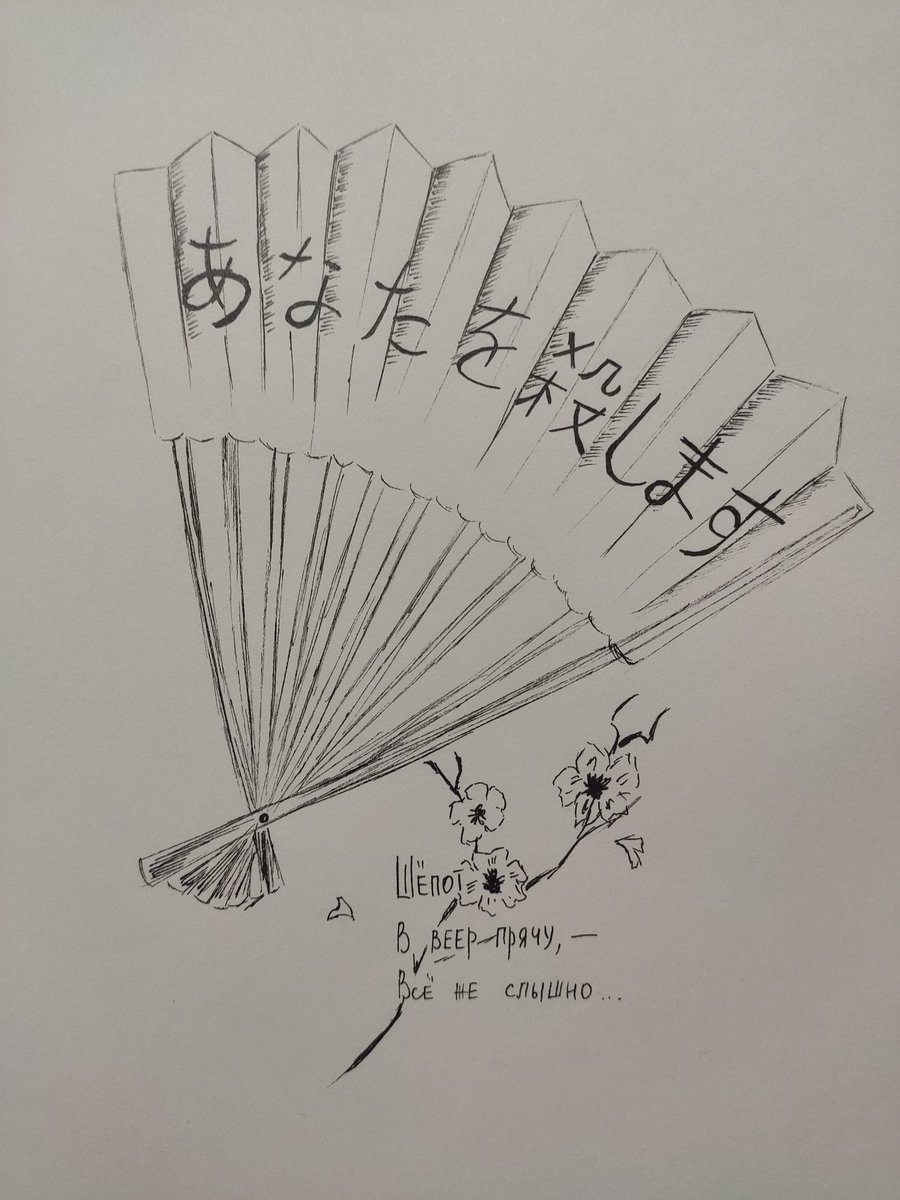 あなたを殺します
Шёпот
В веер прячу, —
Всё же слышно...